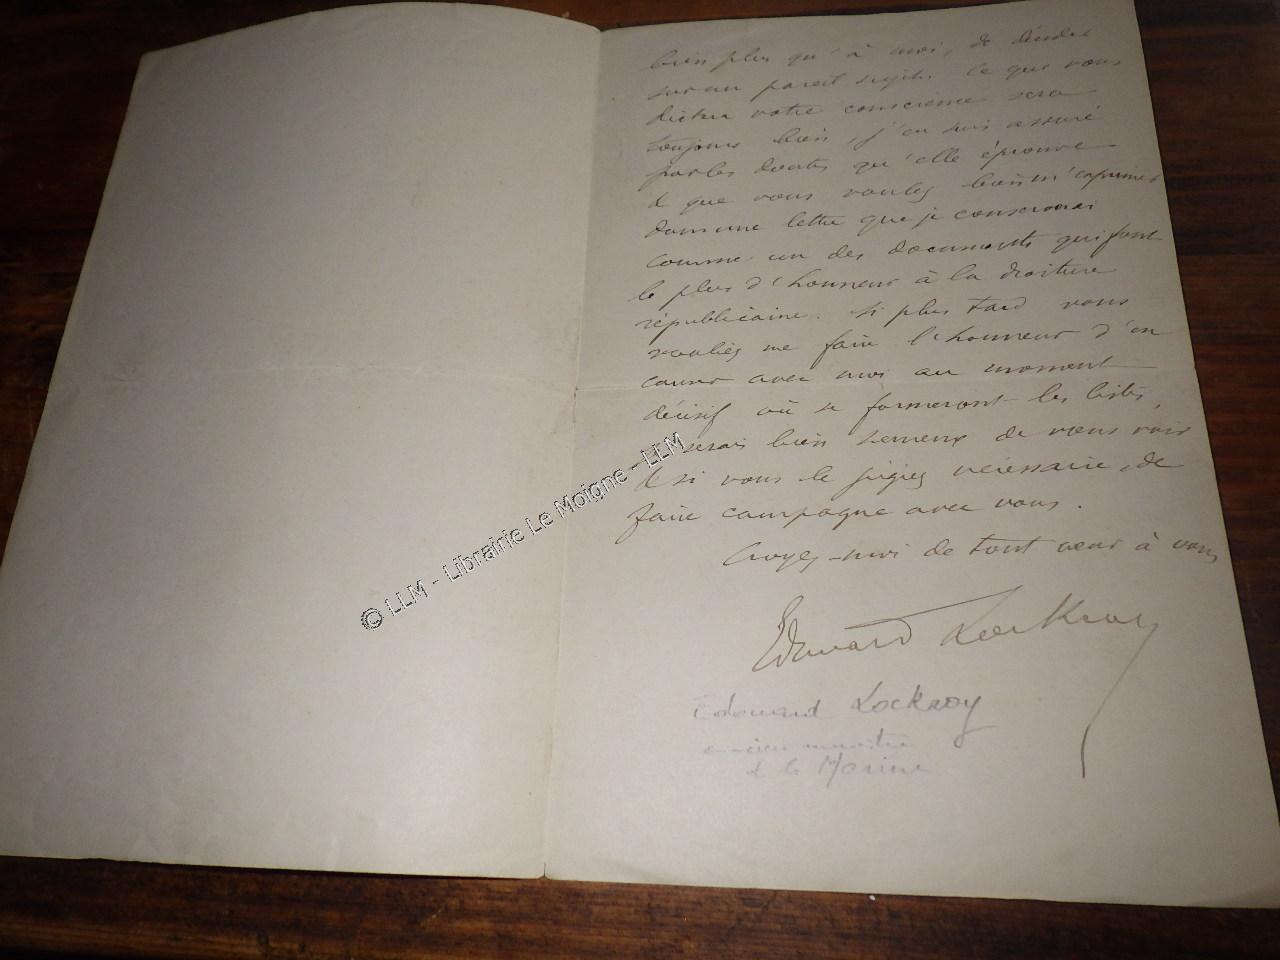 bien plus qu'à moi, de décider
sur un pareil sujet. Ce que vous
dictera votre conscience sera
toujours bien, j'en suis assuré
par les doutes qu'elle éprouve
et que vous voulez bien m'exprimer
dans une lettre que je conserverai
comme un des documents qui font
le plus d'honneur à la droiture
républicaine. Si plus tard vous
vouliez me faire l'honneur d'en
causer avec moi au moment
décisif où se formeront les listes,
je serais bien heureux de vous voir
et si vous le jugez nécessaire, de
faire campagne avec vous.
Croyez-moi de tout cœur à vous
Edouard Lockroy
Edouard Lockroy
ancien ministre
de la Marine
© LLM - Librairie Le Moigne - LLM